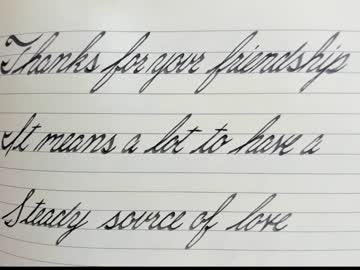 Thanks for your friendship
It means a lot to have a
Steady source of love